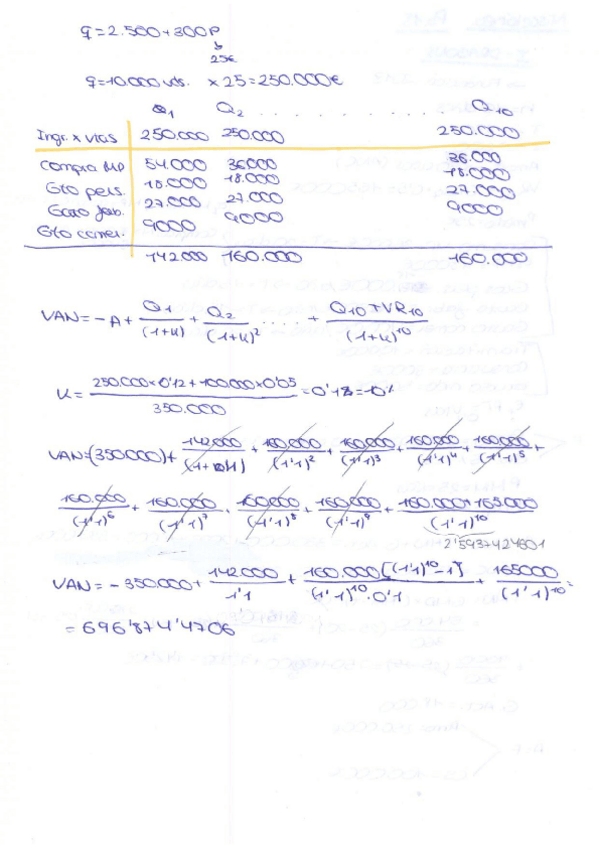 q = 2.500 + 300P
25€
q = 10.000 uds. x 25 = 250.000€
Q1 Q2 . . . . . . . . . . . Q10
Ingr. x vtas 250.000 250.000 250.000
Compra MP 54.000 36000 36.000
Gto pers. 18.000 18.000 18.000
Gasto fab. 27.000 27.000 27.000
Gto comer. 9000 9000 9000
142000 160.000 160.000
VAN = -A + Q1/(1+k) + Q2/(1+k)^2 ..... + Q10+VR10/(1+k)^10
K = 250.000x0'12 + 100.000x0'05/350.000 = 0'1
VAN = (350000) + 142.000/(1+0'1) + 160.000/(1'1)^2 + 160.000/(1'1)^3 + 160.000/(1'1)^4 + 160.000/(1'1)^5 +
160.000/(1'1)^6 + 160.000/(1'1)^7 + 160.000/(1'1)^8 + 160.000/(1'1)^9 + 160.000+165.000/(1'1)^10
2'5937424601
VAN = -350.000 + 142000/1'1 + 160.000[(1'1)^10-1]/(1'1)^10·0'1 + 165000/(1'1)^10 =
= 696'874'4706